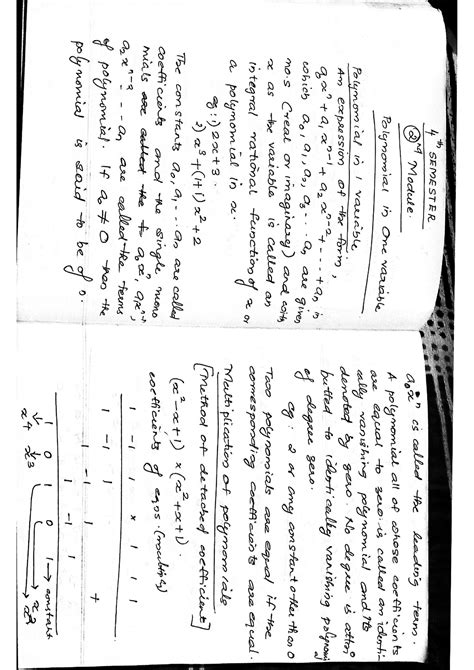 4th SEMESTER
2nd Module.
Polynomial in One variable
Polynomial in 1 variable
An expression of the form,
a₀xⁿ + a₁xⁿ⁻¹ + a₂xⁿ⁻² + --- + aₙ in
which a₀, a₁, a₂, a₃ ... aₙ are given
no.s (real or imaginary) and with
x as the variable is called an
integral rational function of x or
a polynomial in x.
eg: 1) 2x+3.
2) x³ + (1+i)x² + 2
The constants a₀, a₁, ... aₙ are called
coefficients and the single mono
mials are called the a₀xⁿ, a₁xⁿ⁻¹,
a₂xⁿ⁻² --- aₙ are called the terms
of polynomial. If a₀ ≠ 0 then the
polynomial is said to be of n.
a₀xⁿ is called the leading term.
A polynomial all of whose coefficients
are equal to zero is called an identi-
cally vanishing polynomial and its
denoted by zero. No degree is attri
butted to identically vanishing polynomi
of degree zero.
eg: 2 or any constant other than 0
Two polynomials are equal if the
corresponding coefficients are equal.
Multiplication of polynomials
[Method of detached coefficient]
(x²-x+1) × (x²+x+1).
coefficients of eqns. (multiply)
1 -1 1 × 1 1 1
1 -1 1
1 -1 1 +
1 -1 1
1 0 1 0 1 → constant
x⁴ x³ x² x